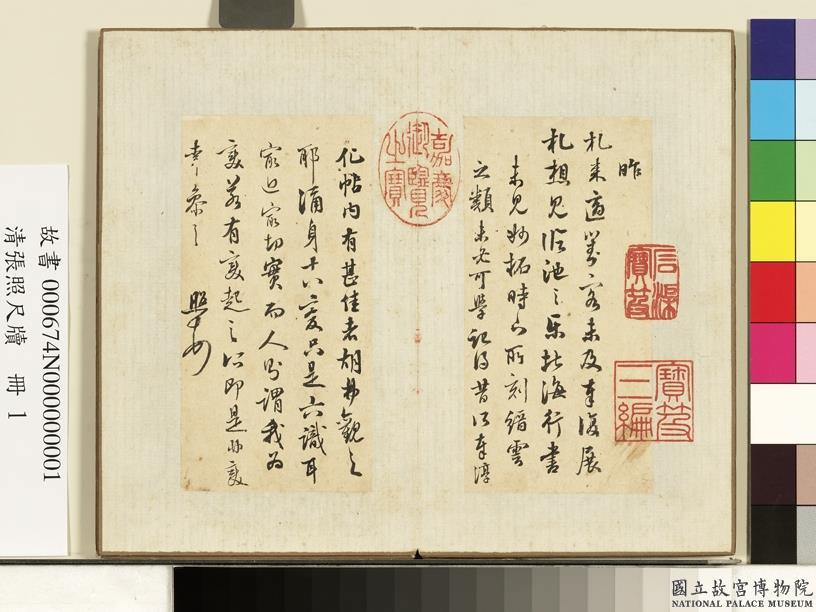 昨
札來適對客未及奉復展
札想見臨池之樂北海行書
未見妙拓時下所刻縉雲
之類未必可學記得昔以奉淳
化帖內有甚佳者胡弗觀之
耶通身十八變只是六識耳
最近最切實而人多謂我為
變若有變起之心即是非變
照
嘉慶御覽之寶
石渠寶笈
寶笈三編
故書 000674N000000001
清張照尺牘 冊 1
國立故宮博物院
NATIONAL PALACE MUSEUM